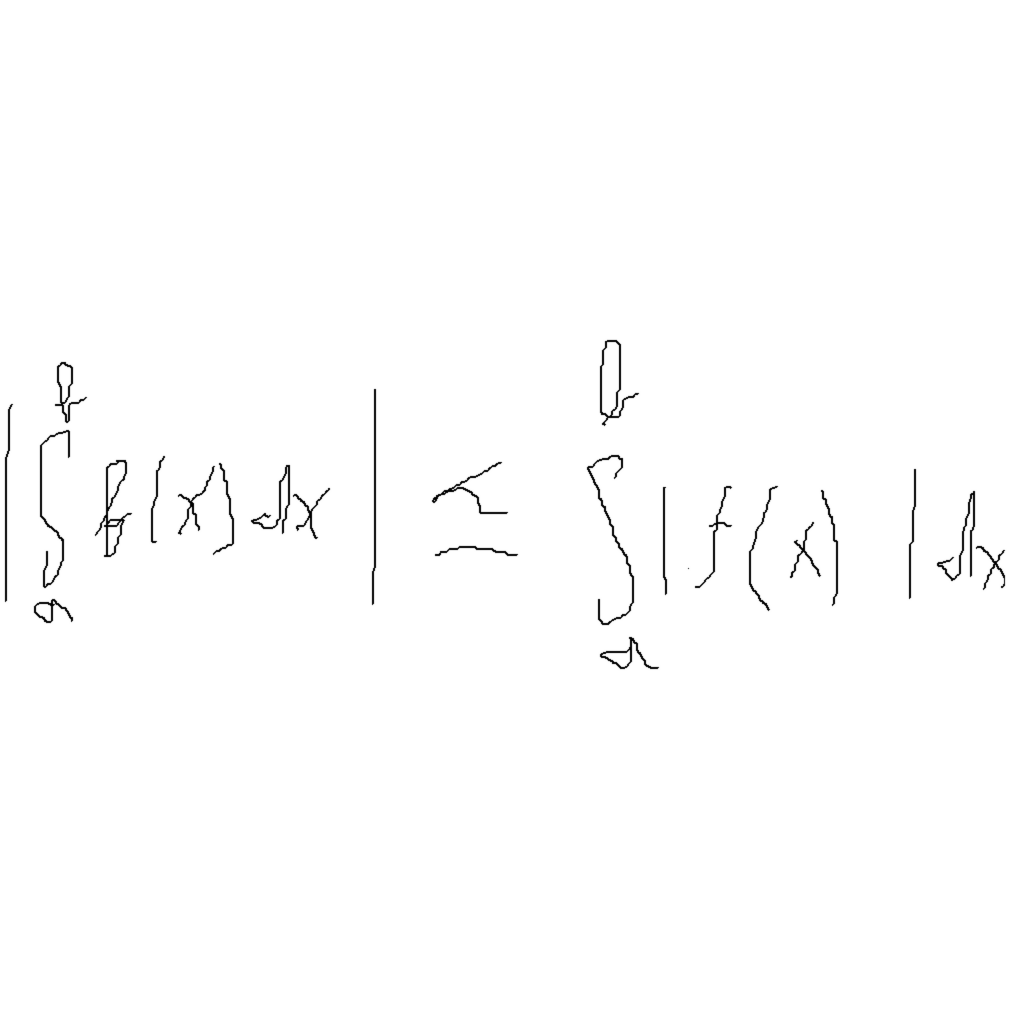 \left| \int_{a}^{b} f(x) dx \right| \leq \int_{a}^{b} |f(x)| dx